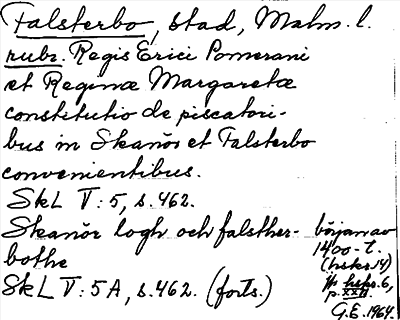 Falsterbo, stad, Malm. l.
rubr. Regis Erici Pomerani
et Reginæ Margaretæ
constitutio de piscatori-
bus in Skanör et Falsterbo
convenientibus.
SkL V:5, s.462.
Skanör logh och falsther-
bothe
SkL V:5A, s.462. (forts.)
början av
1400-t.
(hskr.14)
hskr.6,
p. XXII.
G.E. 1964.